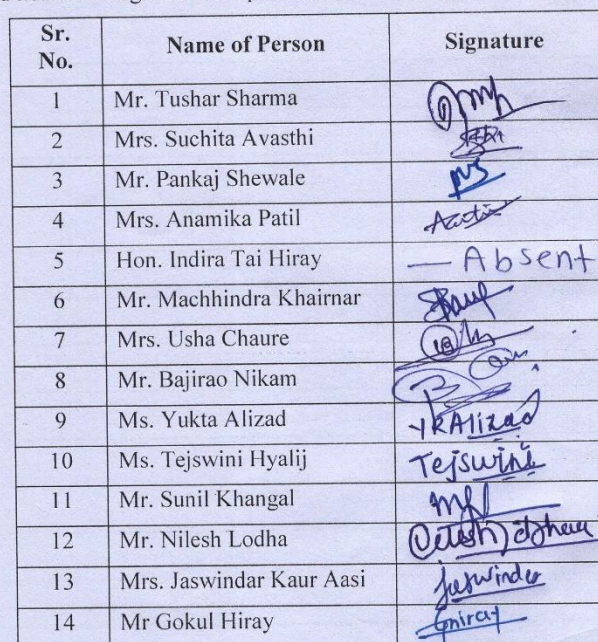 Sr. No. Name of Person Signature
1 Mr. Tushar Sharma
2 Mrs. Suchita Avasthi
3 Mr. Pankaj Shewale
4 Mrs. Anamika Patil
5 Hon. Indira Tai Hiray — Absent
6 Mr. Machhindra Khairnar
7 Mrs. Usha Chaure
8 Mr. Bajirao Nikam
9 Ms. Yukta Alizad YRAlizad
10 Ms. Tejswini Hyalij Tejswini
11 Mr. Sunil Khangal
12 Mr. Nilesh Lodha
13 Mrs. Jaswindar Kaur Aasi Jaswinder
14 Mr Gokul Hiray Ghiray